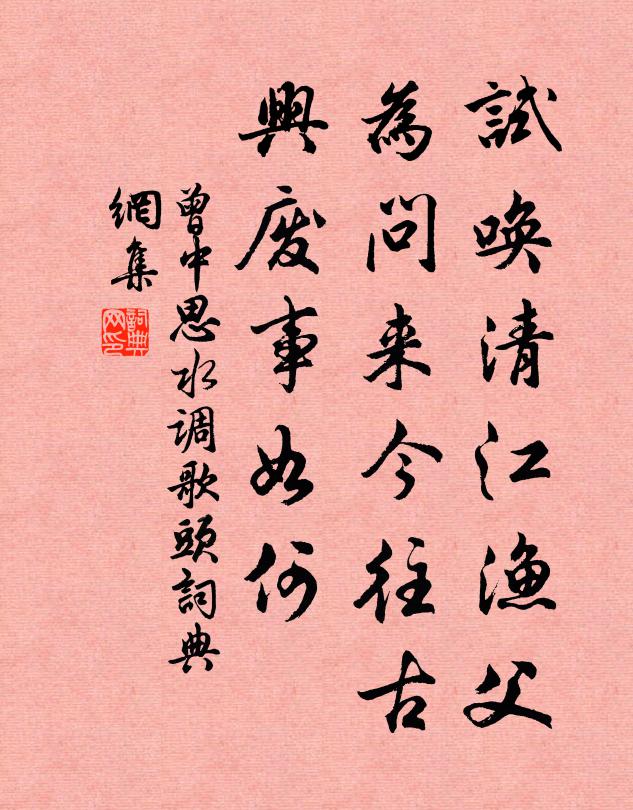 試喚清江漁父
為問来今往古
興廢事如何
曾中思水调歌頭詞典
網集
詞典
网印